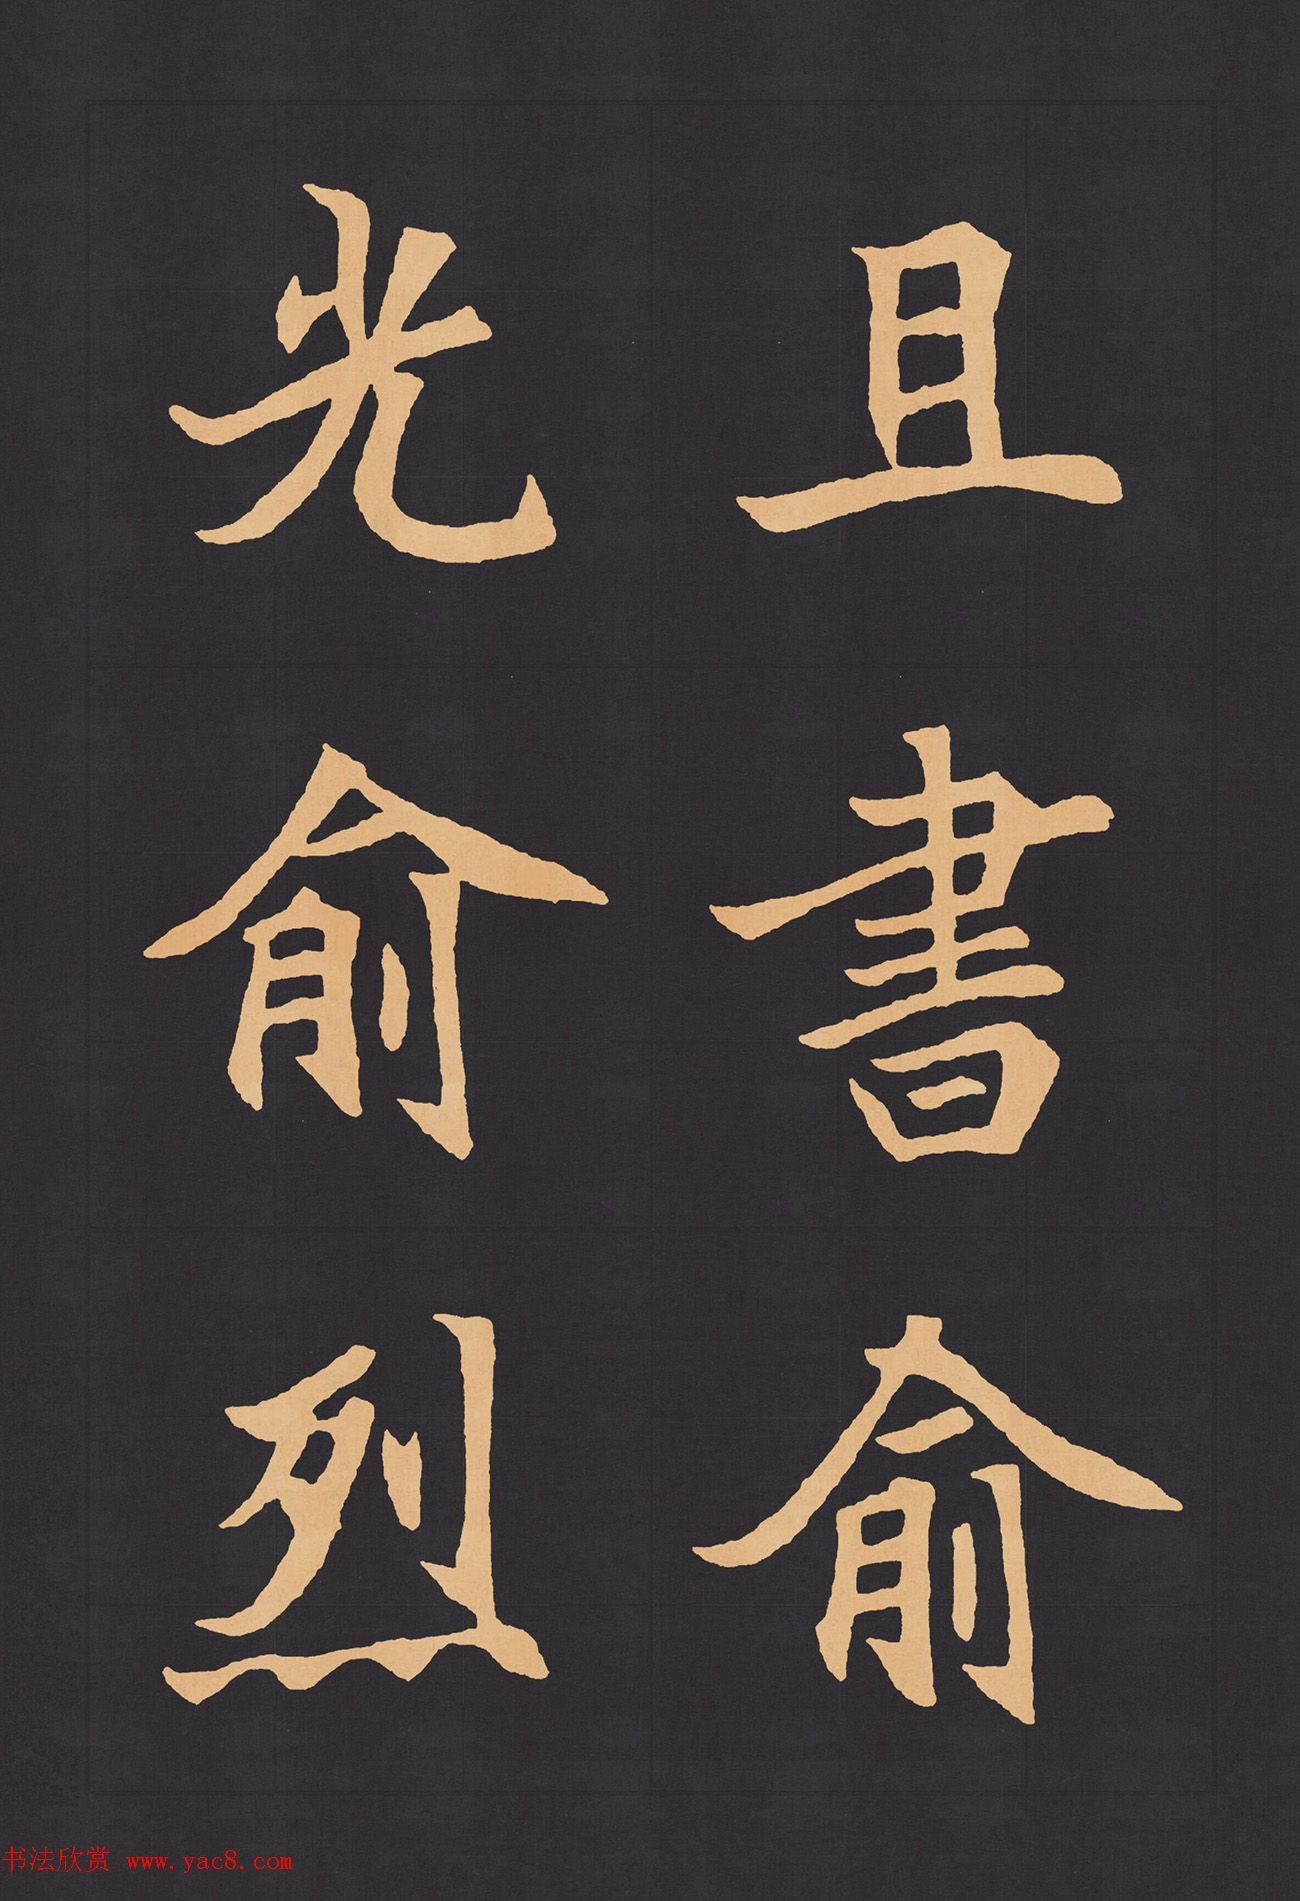 且書俞
光俞烈
书法欣赏 www.yac8.com